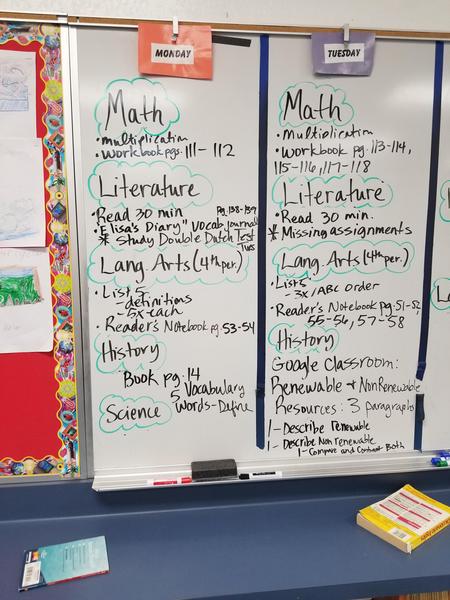 MONDAY
Math
• multiplication
• workbook pgs. 111- 112
Literature
• Read 30 min pg. 138-139
• "Elisa's Diary" vocab. Journal
* Study Double Dutch Test
Tues
Lang. Arts (4th per.)
• List 5
- definitions
- 5x each
• Reader's Notebook pg. 53-54
History
Book pg. 14
5 Vocabulary
Words-Define
Science
TUESDAY
Math
• Multiplication
• Workbook pg. 113-114,
115-116, 117-118
Literature
• Read 30 min.
* Missing assignments
Lang. Arts (4th per.)
• List 5
- 3x/ABC order
• Reader's Notebook pg. 51-52,
55-56, 57-58
History
Google Classroom:
Renewable + NonRenewable
Resources: 3 paragraphs
1- Describe Renewable
1- Describe Non renewable
1- Compare and Contrast Both